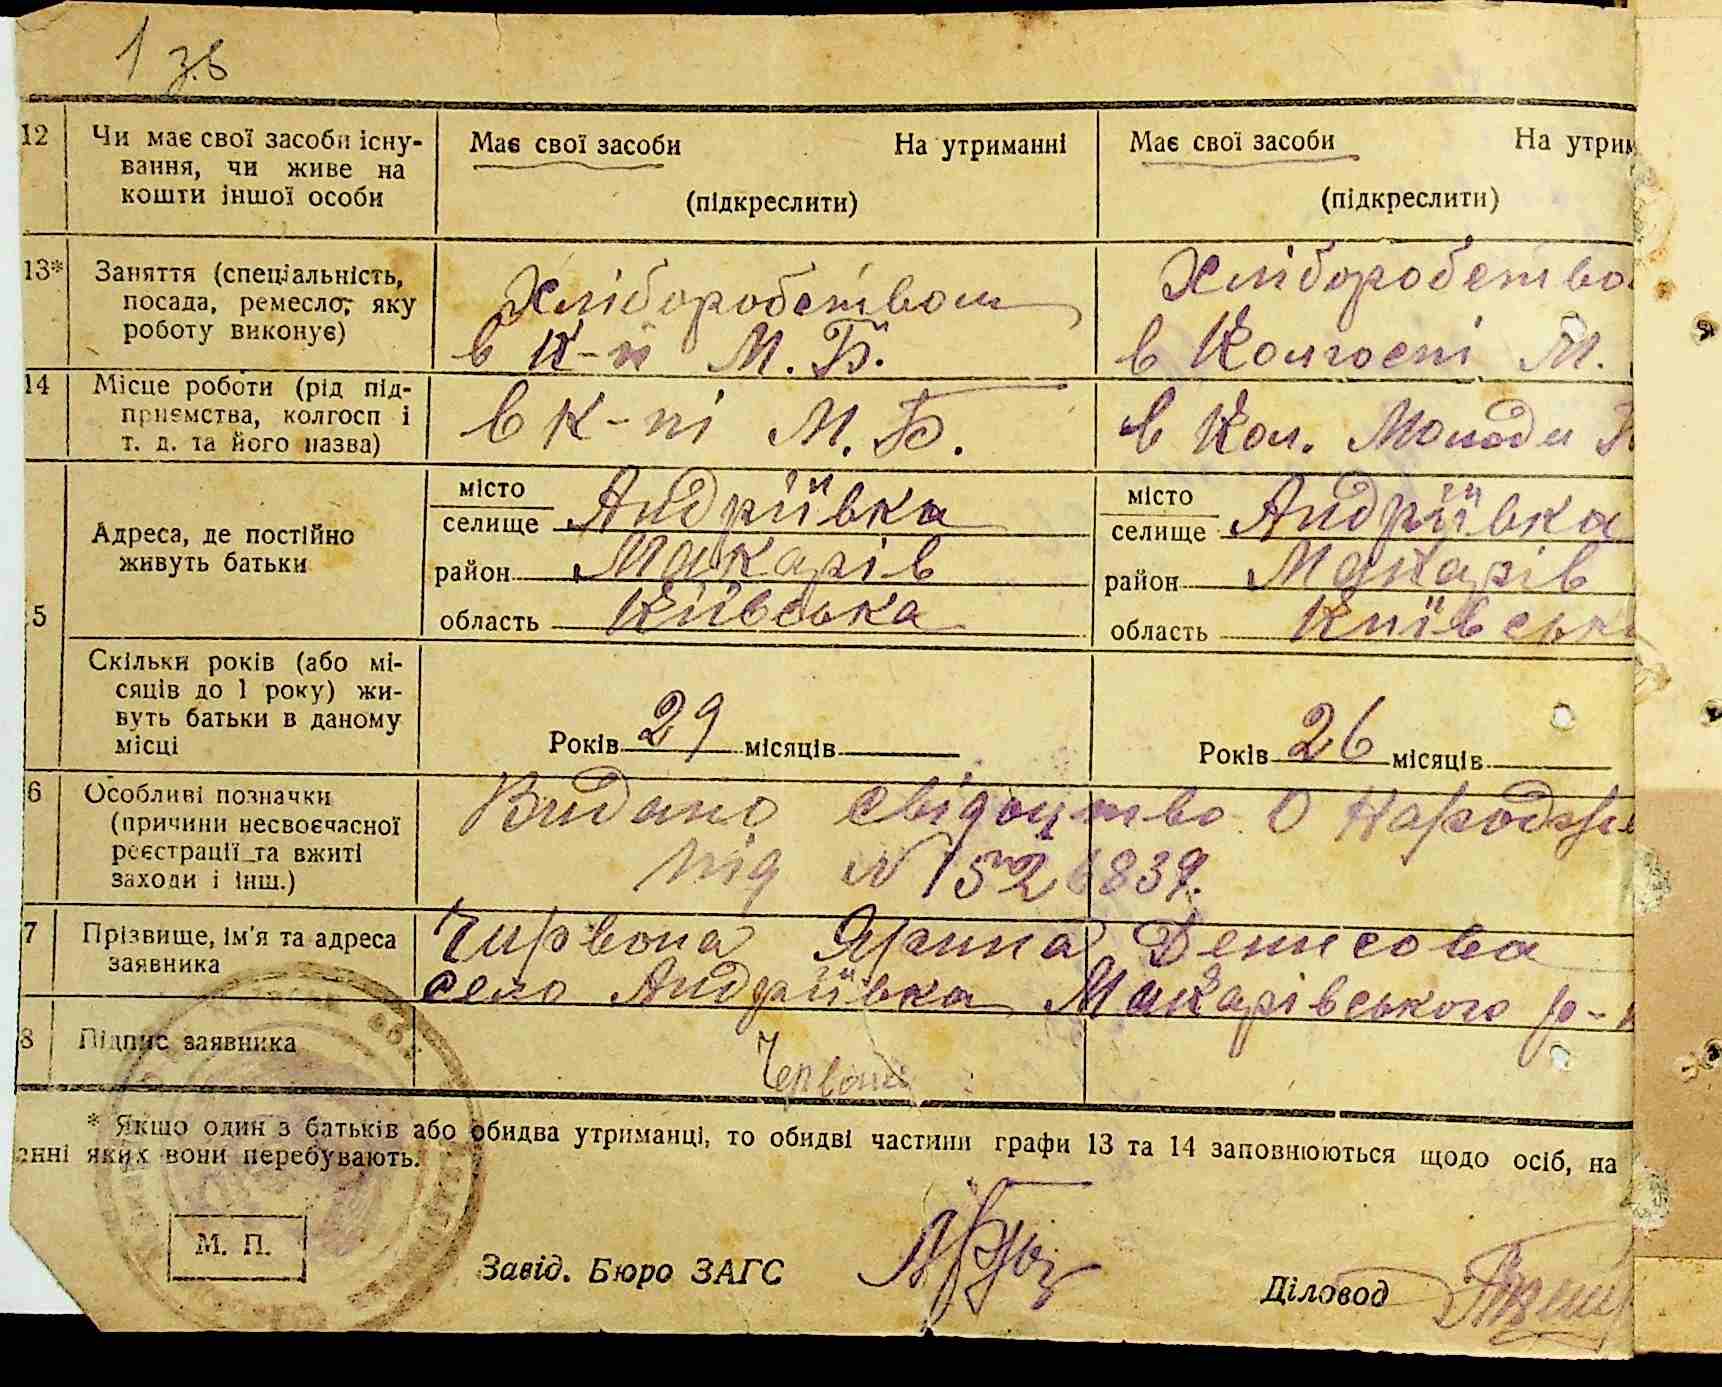 1 зв
12 Чи має свої засоби існу- Має свої засоби На утриманні Має свої засоби На утрим
вання, чи живе на
кошти іншої особи (підкреслити) (підкреслити)
13* Заняття (спеціальність, Хліборобством Хліборобство
посада, ремесло, яку
роботу виконує) в К-п М. Б. в Колгоспі М.
14 Місце роботи (рід під- в к-пі М. Б. в Кол. Молоди
приємства, колгосп і
т. д. та його назва)
місто місто
селище Андріївка селище Андріївка
Адреса, де постійно
живуть батьки район Макарів район Макарів
5 область Київська область Київськ
Скільки років (або мі-
сяців до 1 року) жи-
вуть батьки в даному Років 29 місяців Років 26 місяців
місці
6 Особливі позначки Видано свідоцтво О Народже
(причини несвоєчасної
реєстрації та вжиті під N 526839
заходи і інш.)
7 Прізвище, ім'я та адреса Чирвона Ярина Денисова
заявника село Андріївка Макарівського р-н
8 Підпис заявника Червона
* Якщо один з батьків або обидва утриманці, то обидві частини графи 13 та 14 заповнюються щодо осіб, на
анні яких вони перебувають.
М. П.
Завід. Бюро ЗАГС Діловод